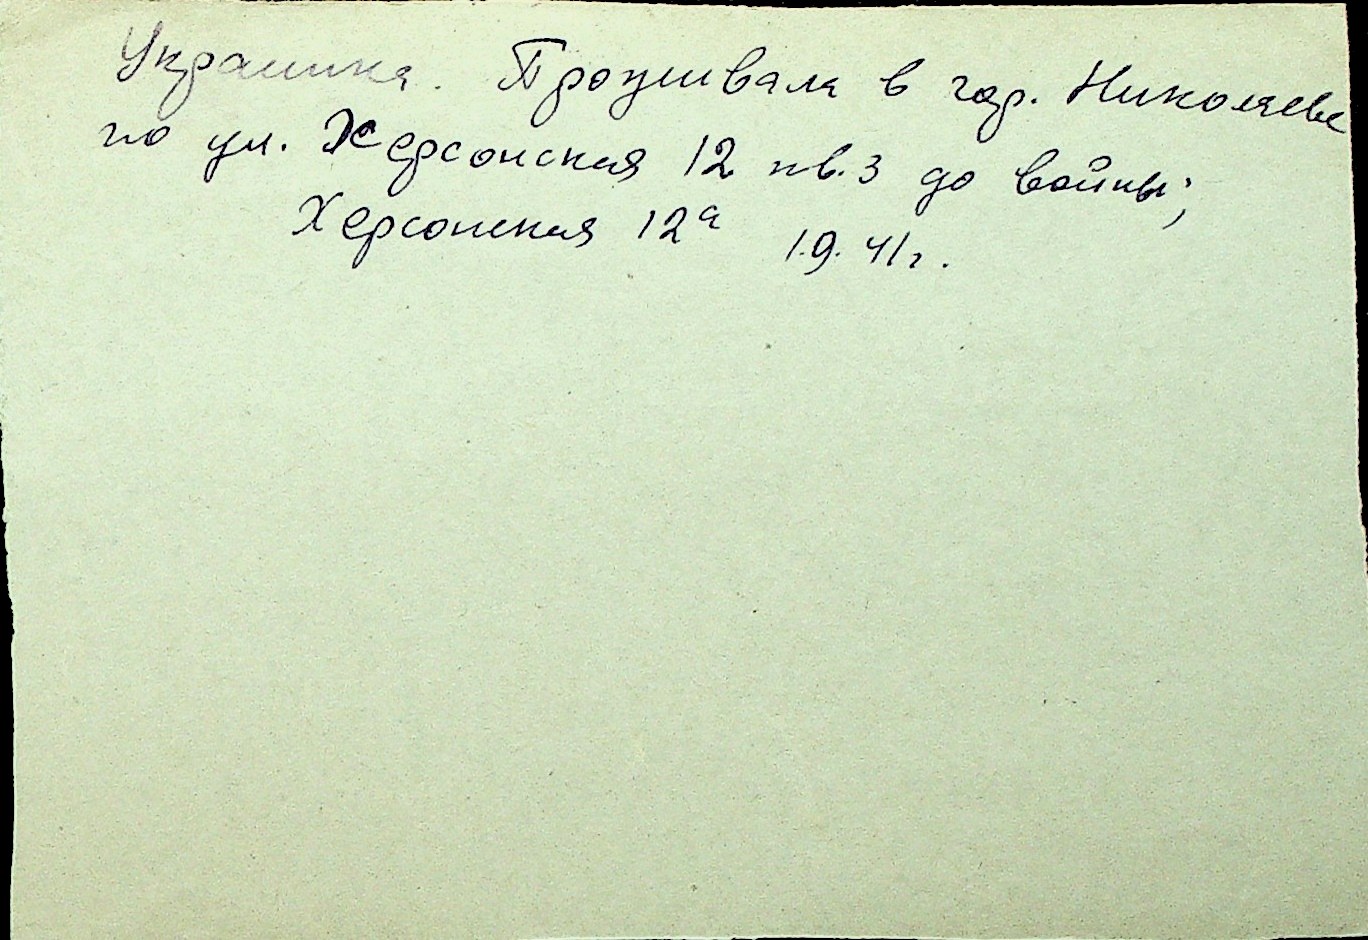 Украинка. Проживала в гор. Николаеве
по ул. Херсонская 12 кв. 3 до войны;
Херсонская 12а 1.9.41 г.